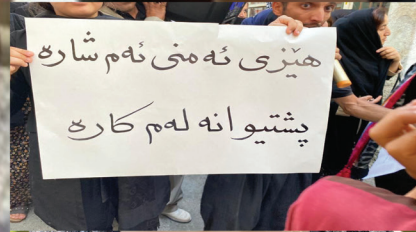 هێزی ئەمنی ئەم شارە
پشتیوانە لەم کارە